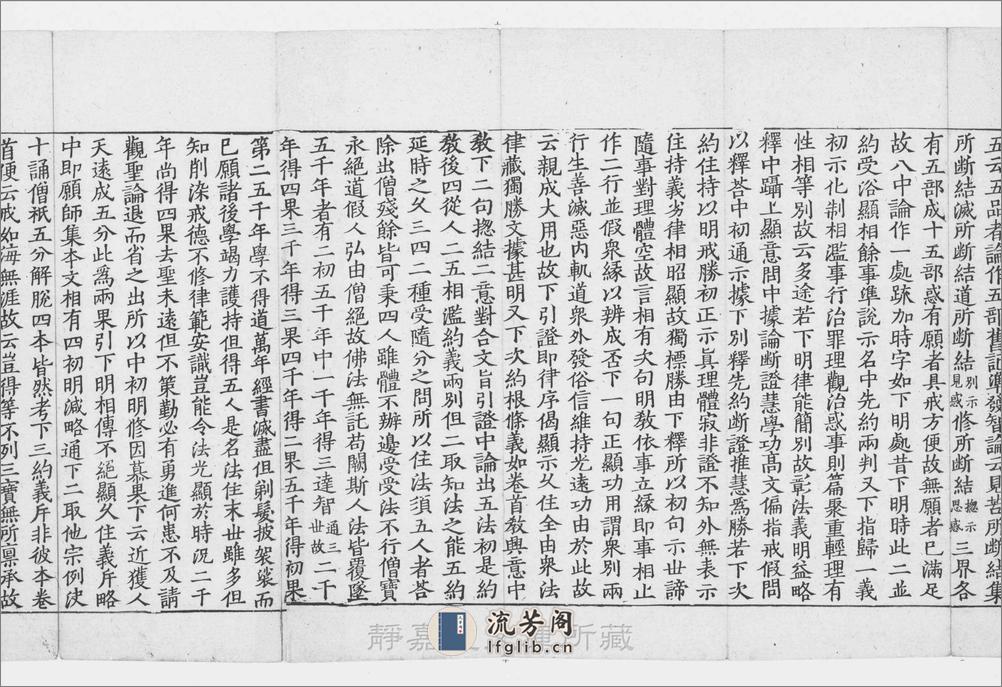 五云五品者論作五部舊記誤發智論云見苦所斷結集
所斷結滅所斷結道所斷結別示見惑修所斷結摠示思惑三界各
有五部成十五部惑有願者具戒方便故無願者已滿足
故八中論作一處䟽加時字如下明處昔下明時此二並
約受浴顯相餘事準說示名中先約兩判又下指歸一義
初示化制相濫事行治罪理觀治惑事則篇聚重輕理有
性相等別故云多途若下明律能簡別故彰法義明益略
釋中躡上顯意問中據論斷證慧學功髙文偏指戒假問
以釋荅中初通示據下別釋先約斷證推慧爲勝若下次
約住持以明戒勝初正示眞理體寂非證不知外無表示
住持義劣律相昭顯故獨標勝由下釋所以初句示世諦
隨事對理體空故言相有次句明教依事立緣即事相止
作二行並假衆緣以辨成否下一句正顯功用謂衆別兩
行生善滅惡内軌道衆外發俗信維持光遠功由於此故
云親成大用也故下引證即律序偈顯示乆住全由衆法
律藏獨勝文據甚明又下次約根條義如卷首教興意中
教下二句摠結二意對合文旨引證中論出五法初是約
教後四從人二五相濫約義兩別但二取知法之能五約
延時之乆三四二種受隨分之問所以住法須五人者荅
除出僧殘餘皆可秉四人雖體不辦邊受受法不行僧寶
永絕道假人弘由僧絕故佛法無託苟闕斯人法皆覆墜
五千年者有二初五千年中一千年得三達智通三世故二千
年得四果三千年得三果四千年得二果五千年得初果
第二五千年學不得道萬年經書滅盡但剃髮披袈裟而
已願諸後學竭力護持但得五人是名法住末世雖多但
知削染戒德不修律範安識豈能令法光顯於時況二千
年尚得四果去聖未遠但不策勤必有勇進何患不及請
觀聖論退而省之出所以中初明修因慕果下云近獲人
天遠成五分此爲兩果引下明相傳不絕顯乆住義斥略
中即願師集本文相有四初明減略通下二取他宗例使
十誦僧祇五分解脫四本皆然考下三約義斥非彼本卷
首便云戒如海無涯故云豈得等不列三寶無所稟承故
靜嘉
所藏
流芳阁
lfglib.com